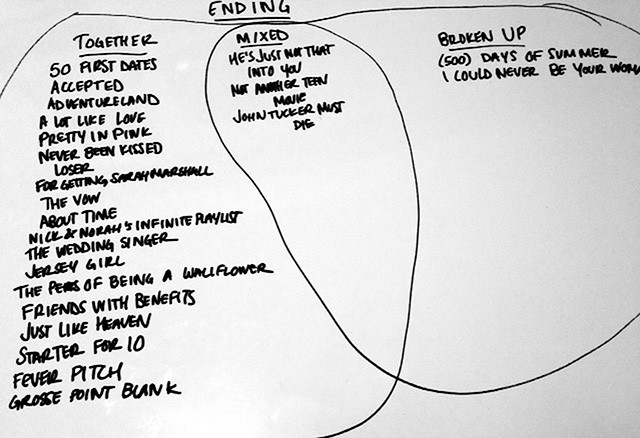 ENDING
TOGETHER
50 FIRST DATES
ACCEPTED
ADVENTURELAND
A LOT LIKE LOVE
PRETTY IN PINK
NEVER BEEN KISSED
LOSER
FORGETTING, SARAH MARSHALL
THE VOW
ABOUT TIME
NICK & NORAH'S INFINITE PLAYLIST
THE WEDDING SINGER
JERSEY GIRL
THE PERKS OF BEING A WALLFLOWER
FRIENDS WITH BENEFITS
JUST LIKE HEAVEN
STARTER FOR 10
FEVER PITCH
GROSSE POINT BLANK
MIXED
HE'S JUST NOT THAT
INTO YOU
NOT ANOTHER TEEN
MOVIE
JOHN TUCKER MUST
DIE
BROKEN UP
(500) DAYS OF SUMMER
I COULD NEVER BE YOUR WOMA